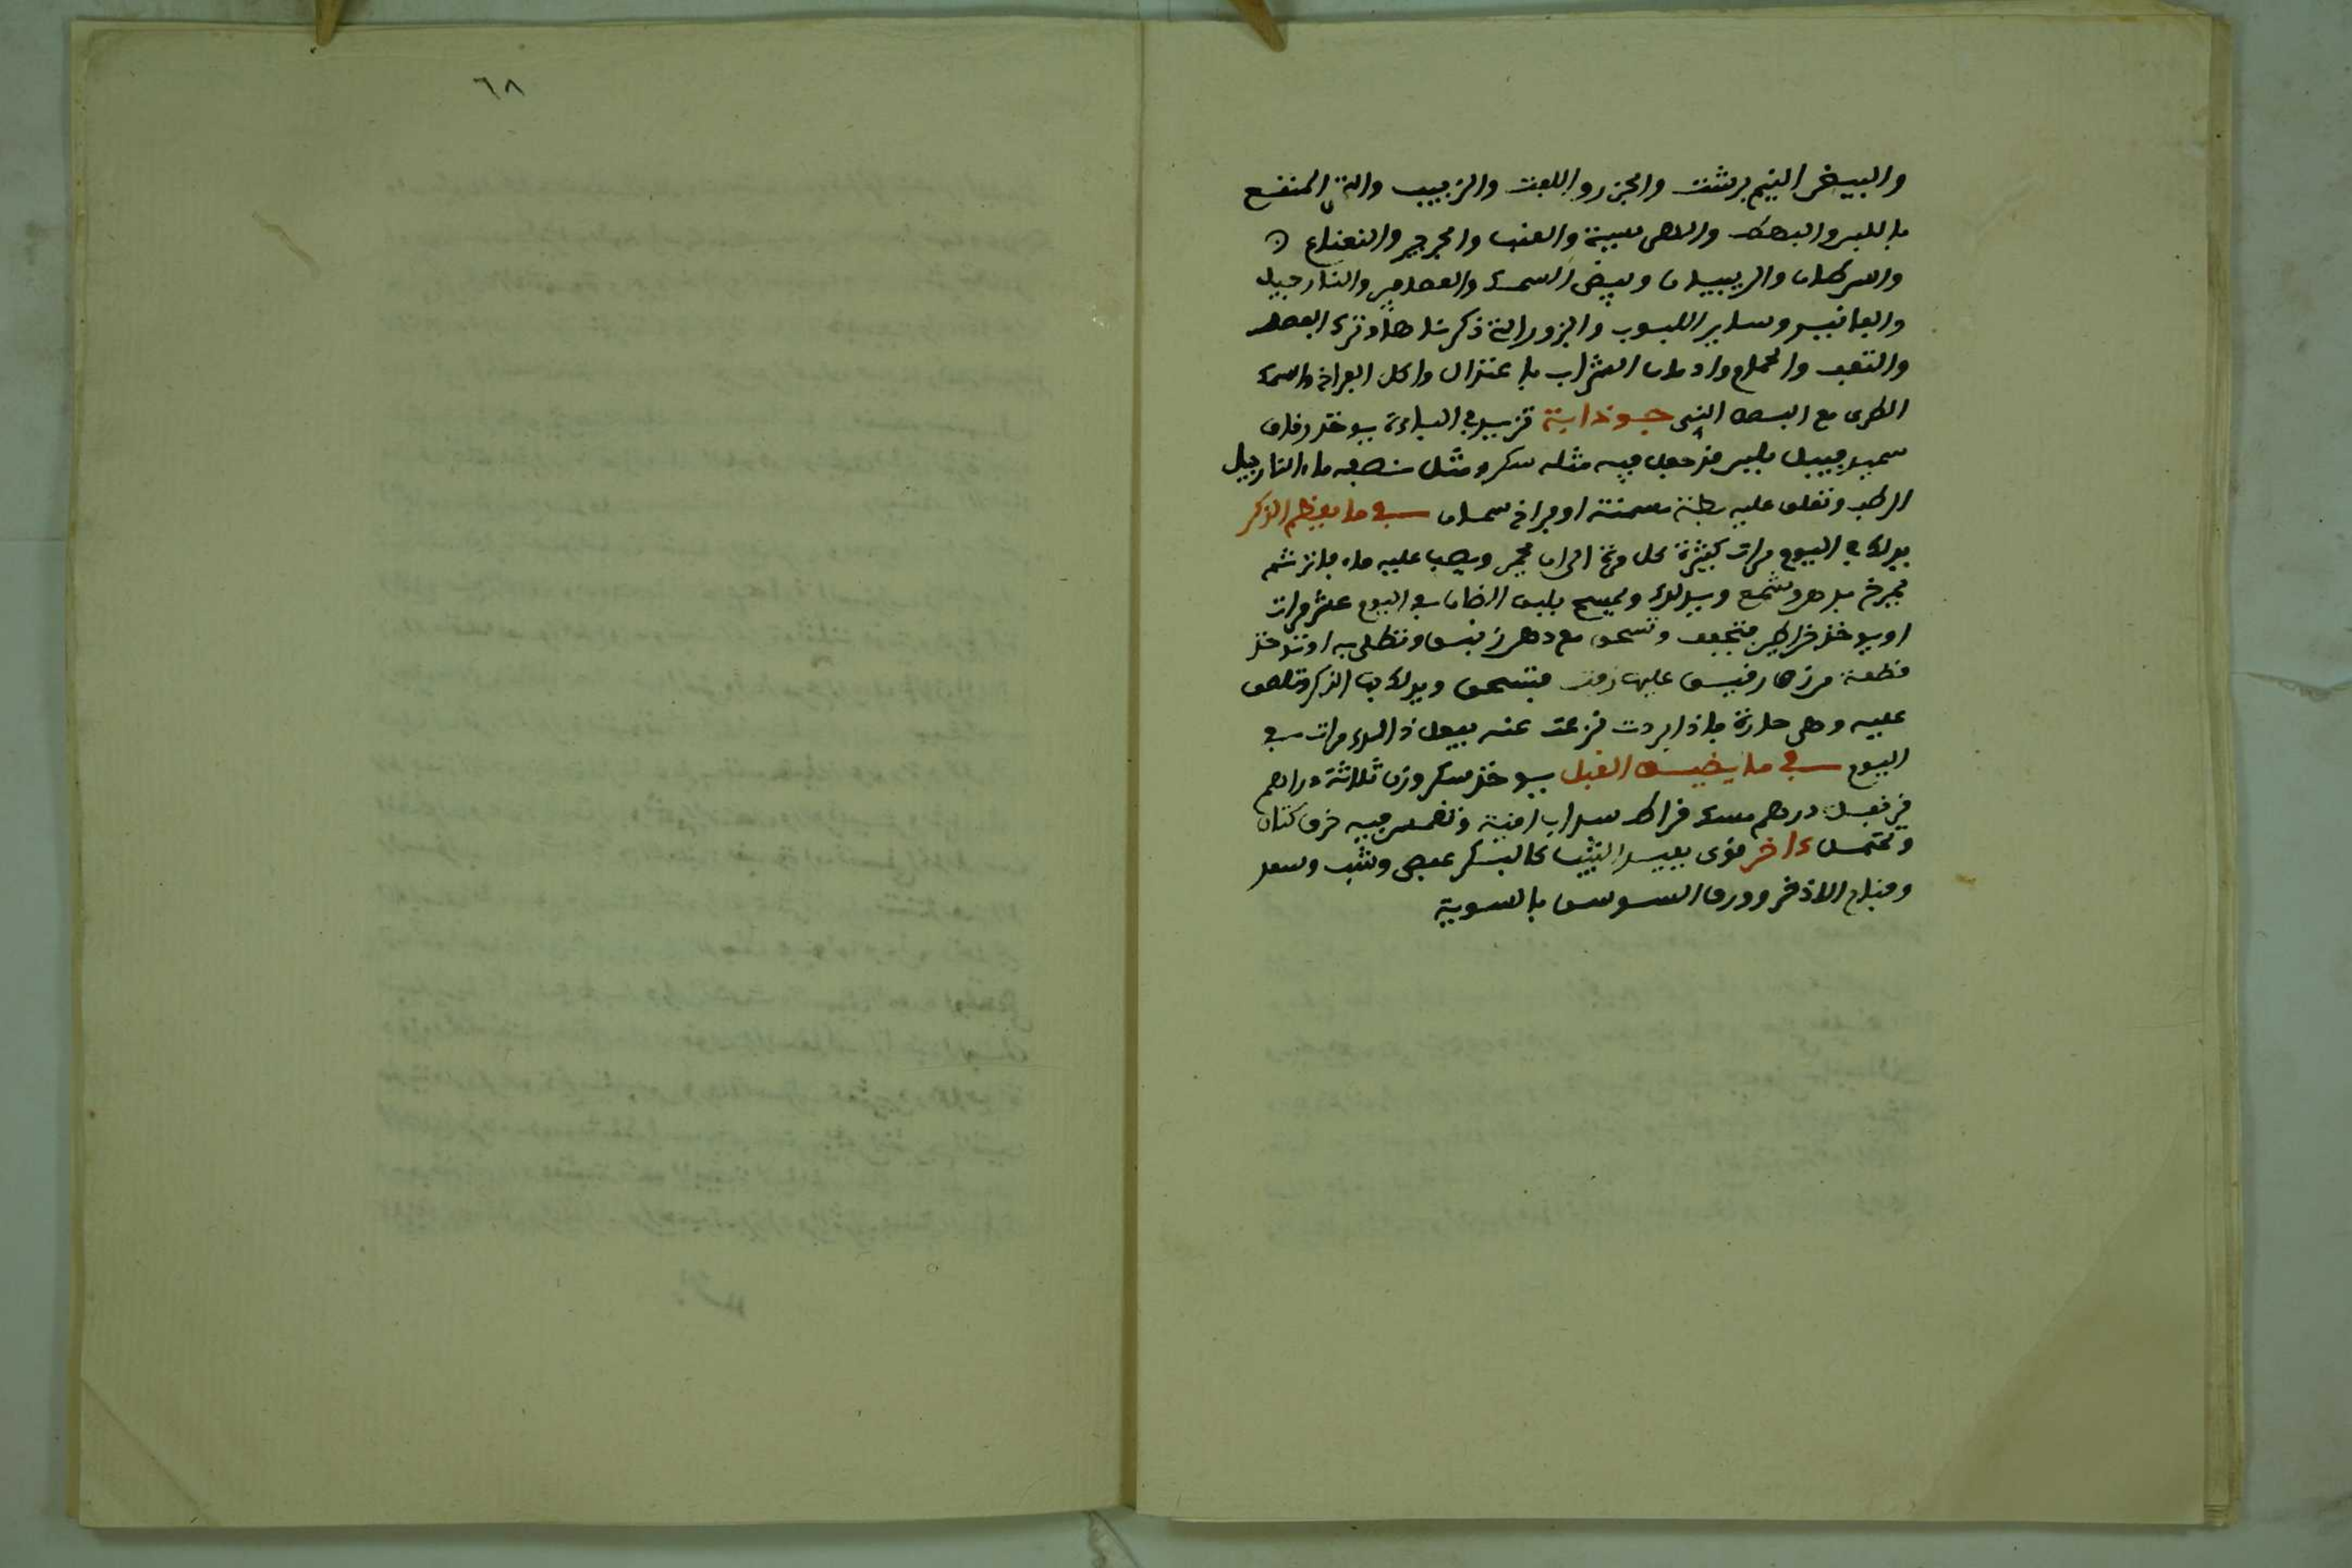 ٦٨
والبيض النيم برشت والجزر واللفت والزبيب والتين المنقع
باللبن والبصل والعنب والجرجير والنعناع
والسرطان والربيبان وبيض السمك والعصافير والنارجيل
والفانيد وساير اللبوب والبزور التي ذكرناها وترك الفصد
والتعب والحمام وادمان الشراب باعتدال واكل الفراخ والسمك
الطرى مع البصل النى جوذابة تزيد في الباءة يوخذ رقاق
سميد فيبل بلبن فيه مثله سكر ومثل نصفه ماء النارجيل
الرطب وتعلق عليه بطة مسمنة او فراخ سمان في ما يعظم الذكر
يدلك في اليوم مرات كثيرة كل مرة الى ان يحمر ويصب عليه ماء فاتر ثم
يمرخ بدهن وشمع ويدلك ويمسح بلبن الضان في اليوم عشر مرات
او يوخذ خراطين فتجفف وتسحق مع دهن زنبق وتطلى به او توخذ
قطعة من عليها زفت فتسخن ويدلك بها الذكر وتلصق
عليه وهى حارة فاذا بردت نزعت عنه يفعل ذالك مرات في
اليوم في ما يضيق القبل يوخذ سك وزن ثلاثة دراهم
قرنفل درهم مسك قراط وتغمس فيه خرق كتان
وتحتمل ءاخر قوى يعيد الثيب كالبكر عفص وشب وسعد
وفقاح الاذخر وورق السوسن بالسوية